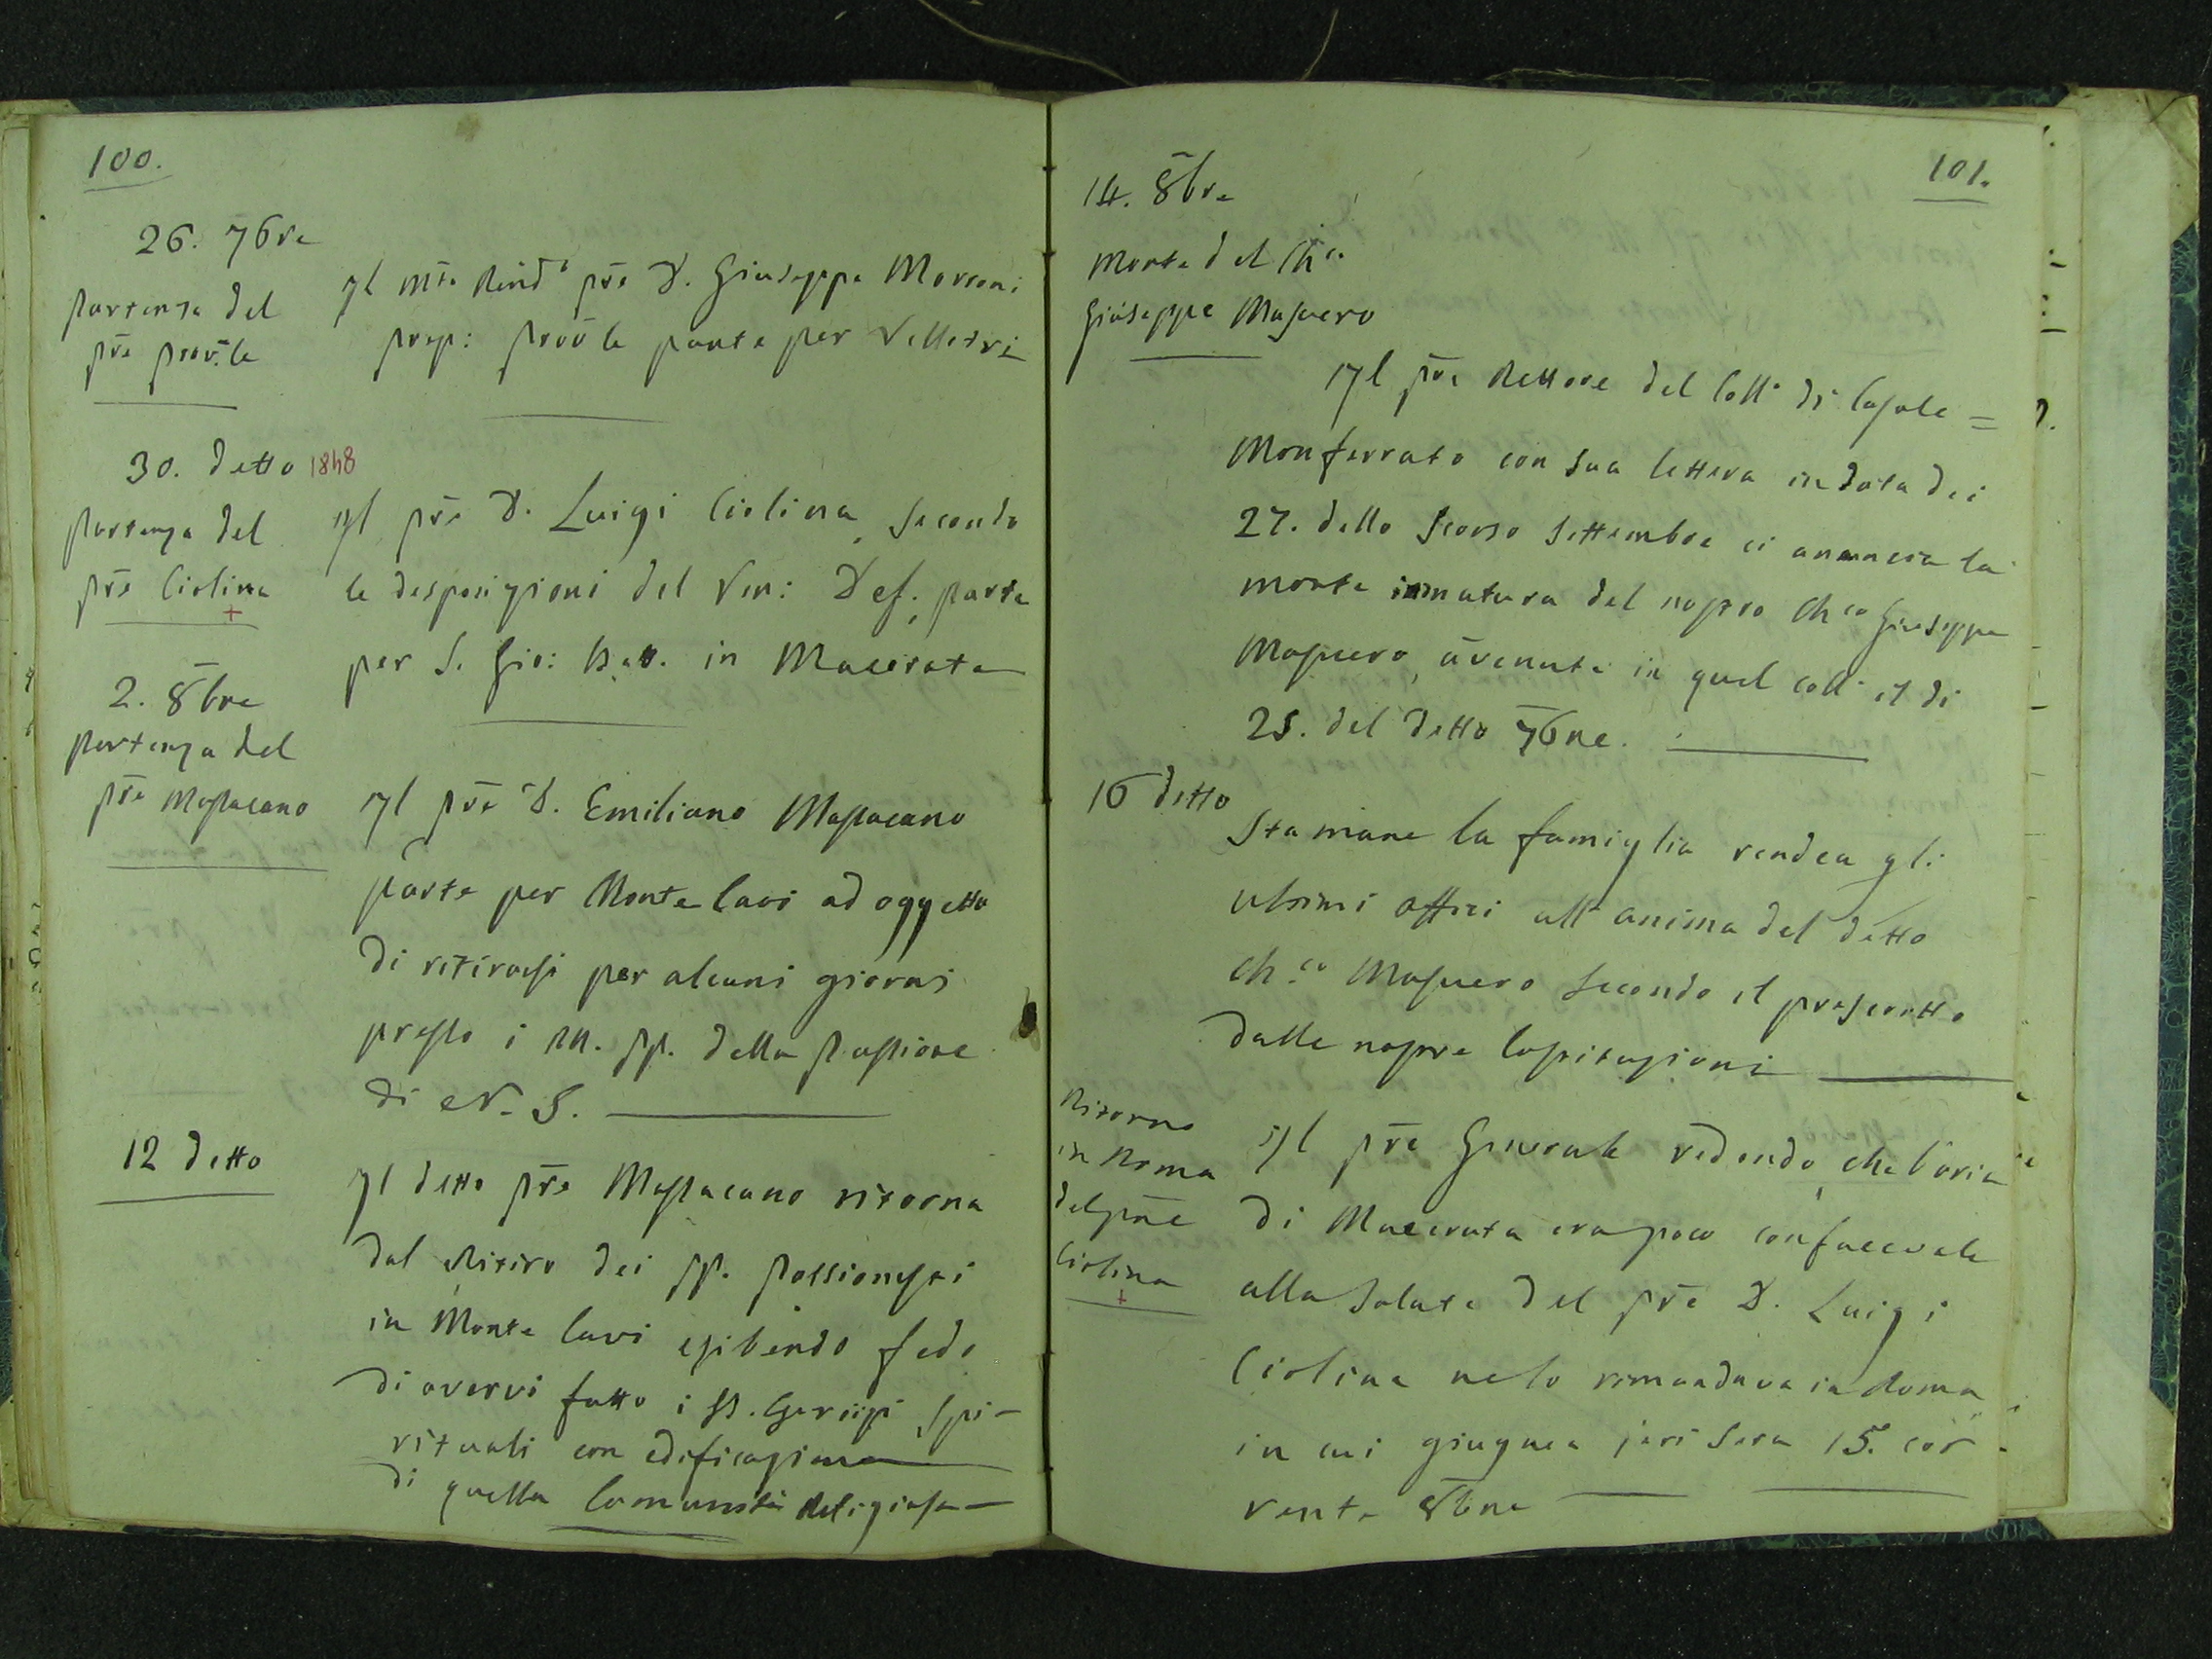 100.
26. 7bre
Partenza del
pre prov.le
Il Mto Rndo pre D. Giuseppe Marconi
prep: prov.le parte per Velletri
30. detto 1848
Partenza del
pre Ciolina
+
Il pre D. Luigi Ciolina, secondo
le desposizioni del Ven: Def., parte
per S. Gio: Batt. in Macerata
2. 8bre
Partenza del
pre Massacano
Il pre D. Emiliano Massacano
parte per Monte Cavi ad oggetto
di ritirarsi per alcuni giorni
presso i RR. PP. della Passione
di N. S.
12 detto
Il detto pre Massacano ritorna
dal Ritiro dei PP. Passionisti
in Monte Cavi esibendo fede
di avervi fatto i SS. Esercizi Spi-
rituali con edificazione
di quella Comunità Religiosa
101.
14. 8bre
Morte del Chco
Giuseppe Masuero
Il pre Rettore del Collo di Casale =
Monferrato con sua lettera in data dei
27. dello scorso Settembre ci annuncia la
morte immatura del nostro Chco Giuseppe
Masuero, avenuta in quel collo il di
25. del detto 7bre.
16 detto
Stamane la famiglia rendea gli
ultimi offici all'anima del detto
Ch.co Masuero secondo il prescritto
dalle nostre Costituzioni
Ritorno
in Roma
del pre
Ciolina
+
Il pre Generale vedendo, che l'aria
di Macerata era poco confacevole
alla salute del pre D. Luigi
Ciolina ne lo rimandava in Roma
in cui giugnea jeri sera 15. cor
rente 8bre